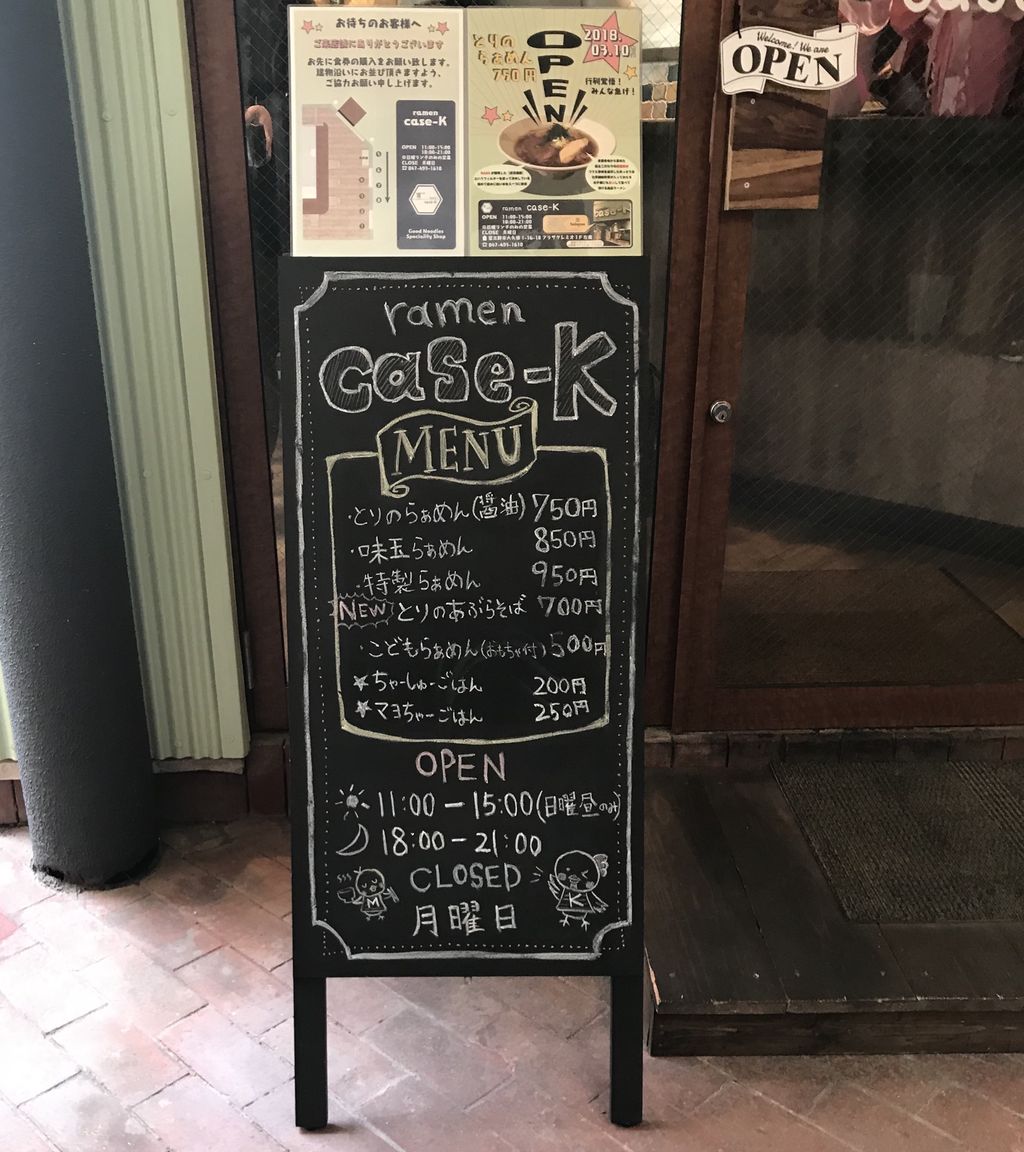 お待ちのお客様へ
ご来店誠にありがとうございます
お先に食券の購入をお願い致します。
建物沿いにお並び頂きますよう、
ご協力お願い申し上げます。
ramen
case-K
OPEN 11:00-15:00
18:00-21:00
※日曜ランチのみの営業
CLOSE 月曜日
☎047-495-1610
Good Noodles
Speciality Shop
とりの
らぁめん
750円
OPEN
2018.
03.10
行列覚悟!
みんな急げ!
ramen case-K
OPEN 11:00-15:00
18:00-21:00
※日曜ランチのみの営業
CLOSE 月曜日
☎047-495-1610
Welcome! We are
OPEN
case
ramen
case-K
MENU
・とりのらぁめん(醤油) 750円
・味玉らぁめん 850円
・特製らぁめん 950円
NEW とりのあぶらそば 700円
・こどもらぁめん(おもちゃ付) 500円
★ちゃーしゅーごはん 200円
★マヨちゃーごはん 250円
OPEN
11:00-15:00(日曜昼のみ)
18:00-21:00
CLOSED
月曜日
M
K